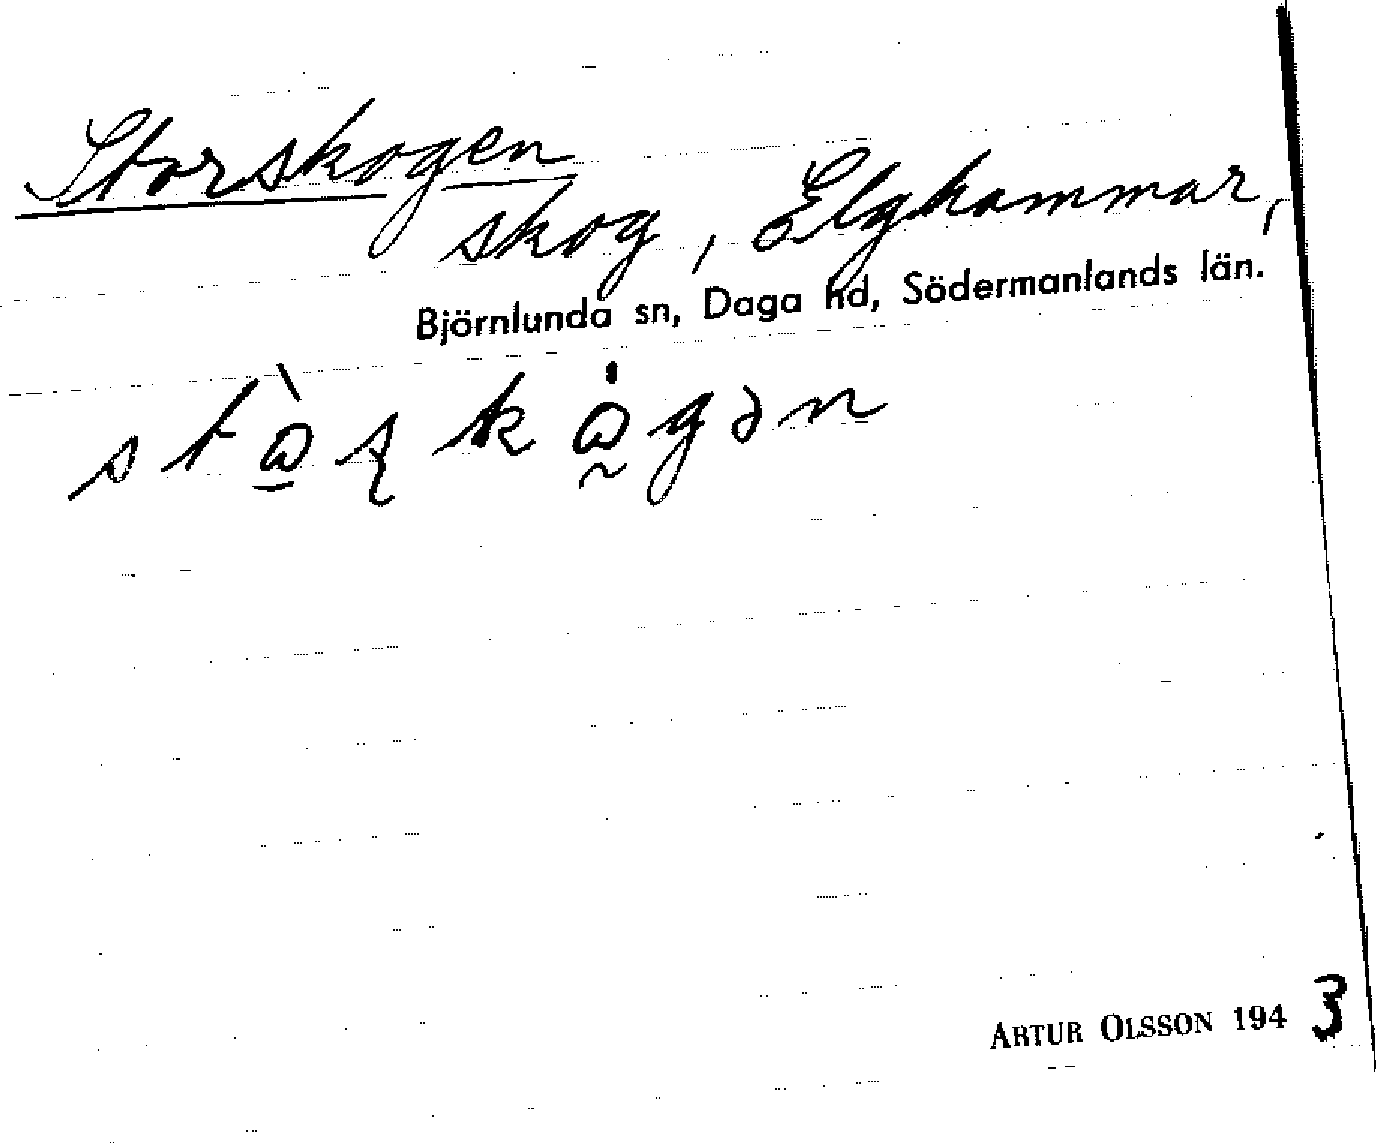 Storskogen
skog, Elghammar,
Björnlunda sn, Daga hd, Södermanlands län.
ARTUR OLSSON 1943